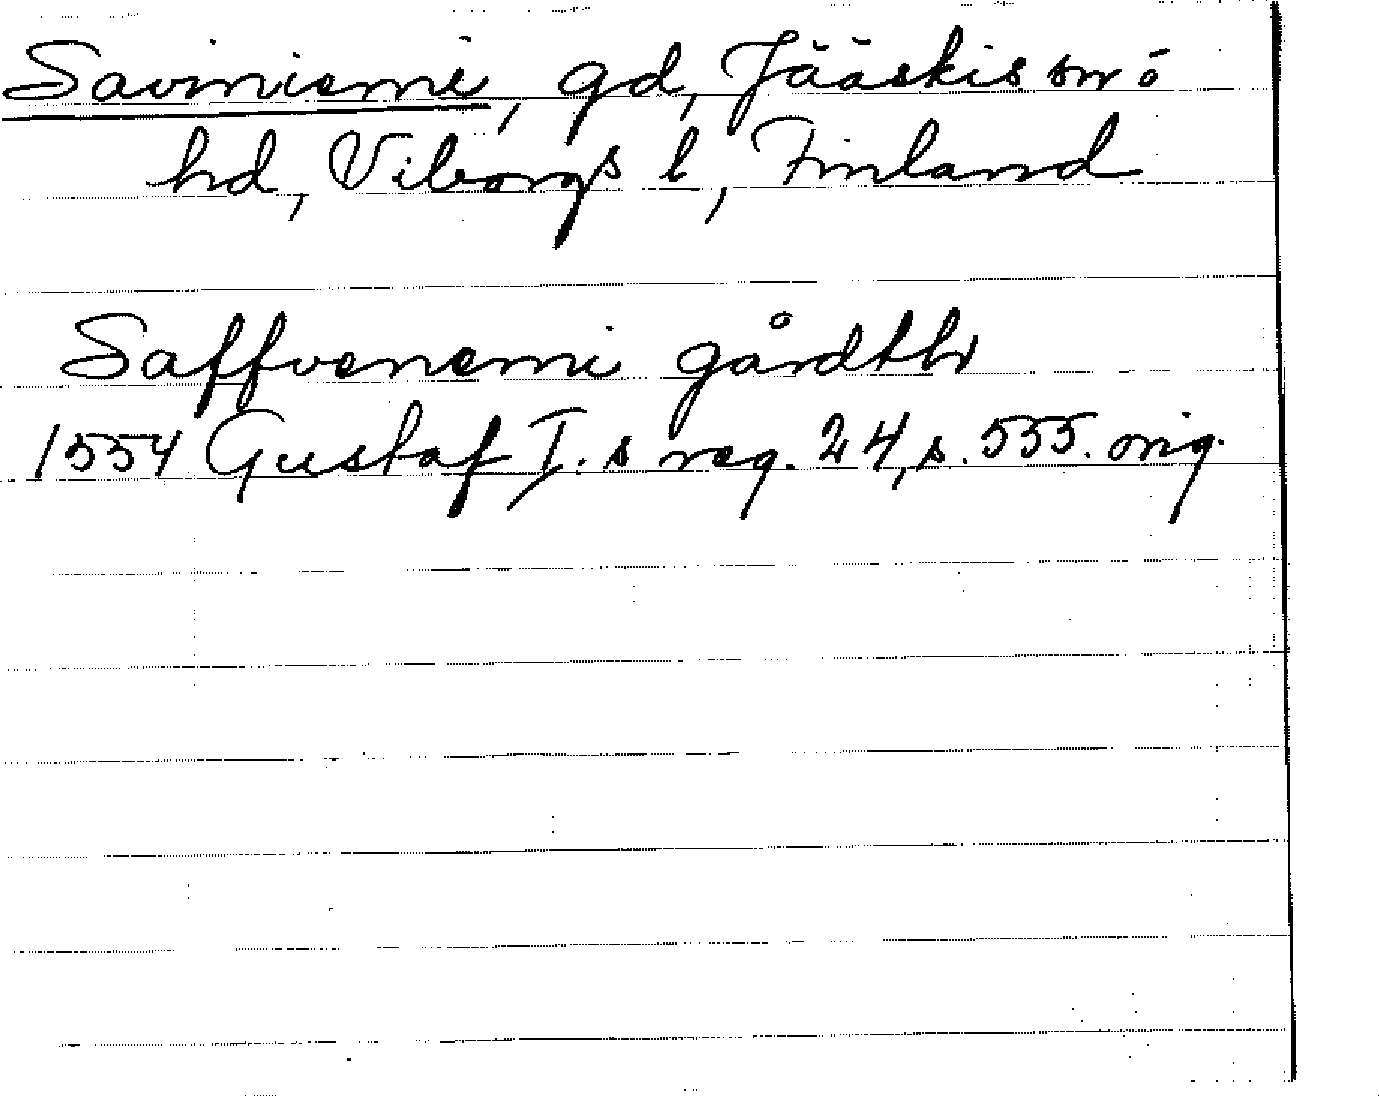 Saviniemi, gd, Jääskis sn ó
hd, Viborgs l, Finland
Saffvenemi gårdth
1554 Gustaf I.s reg. 24, s. 555. orig.